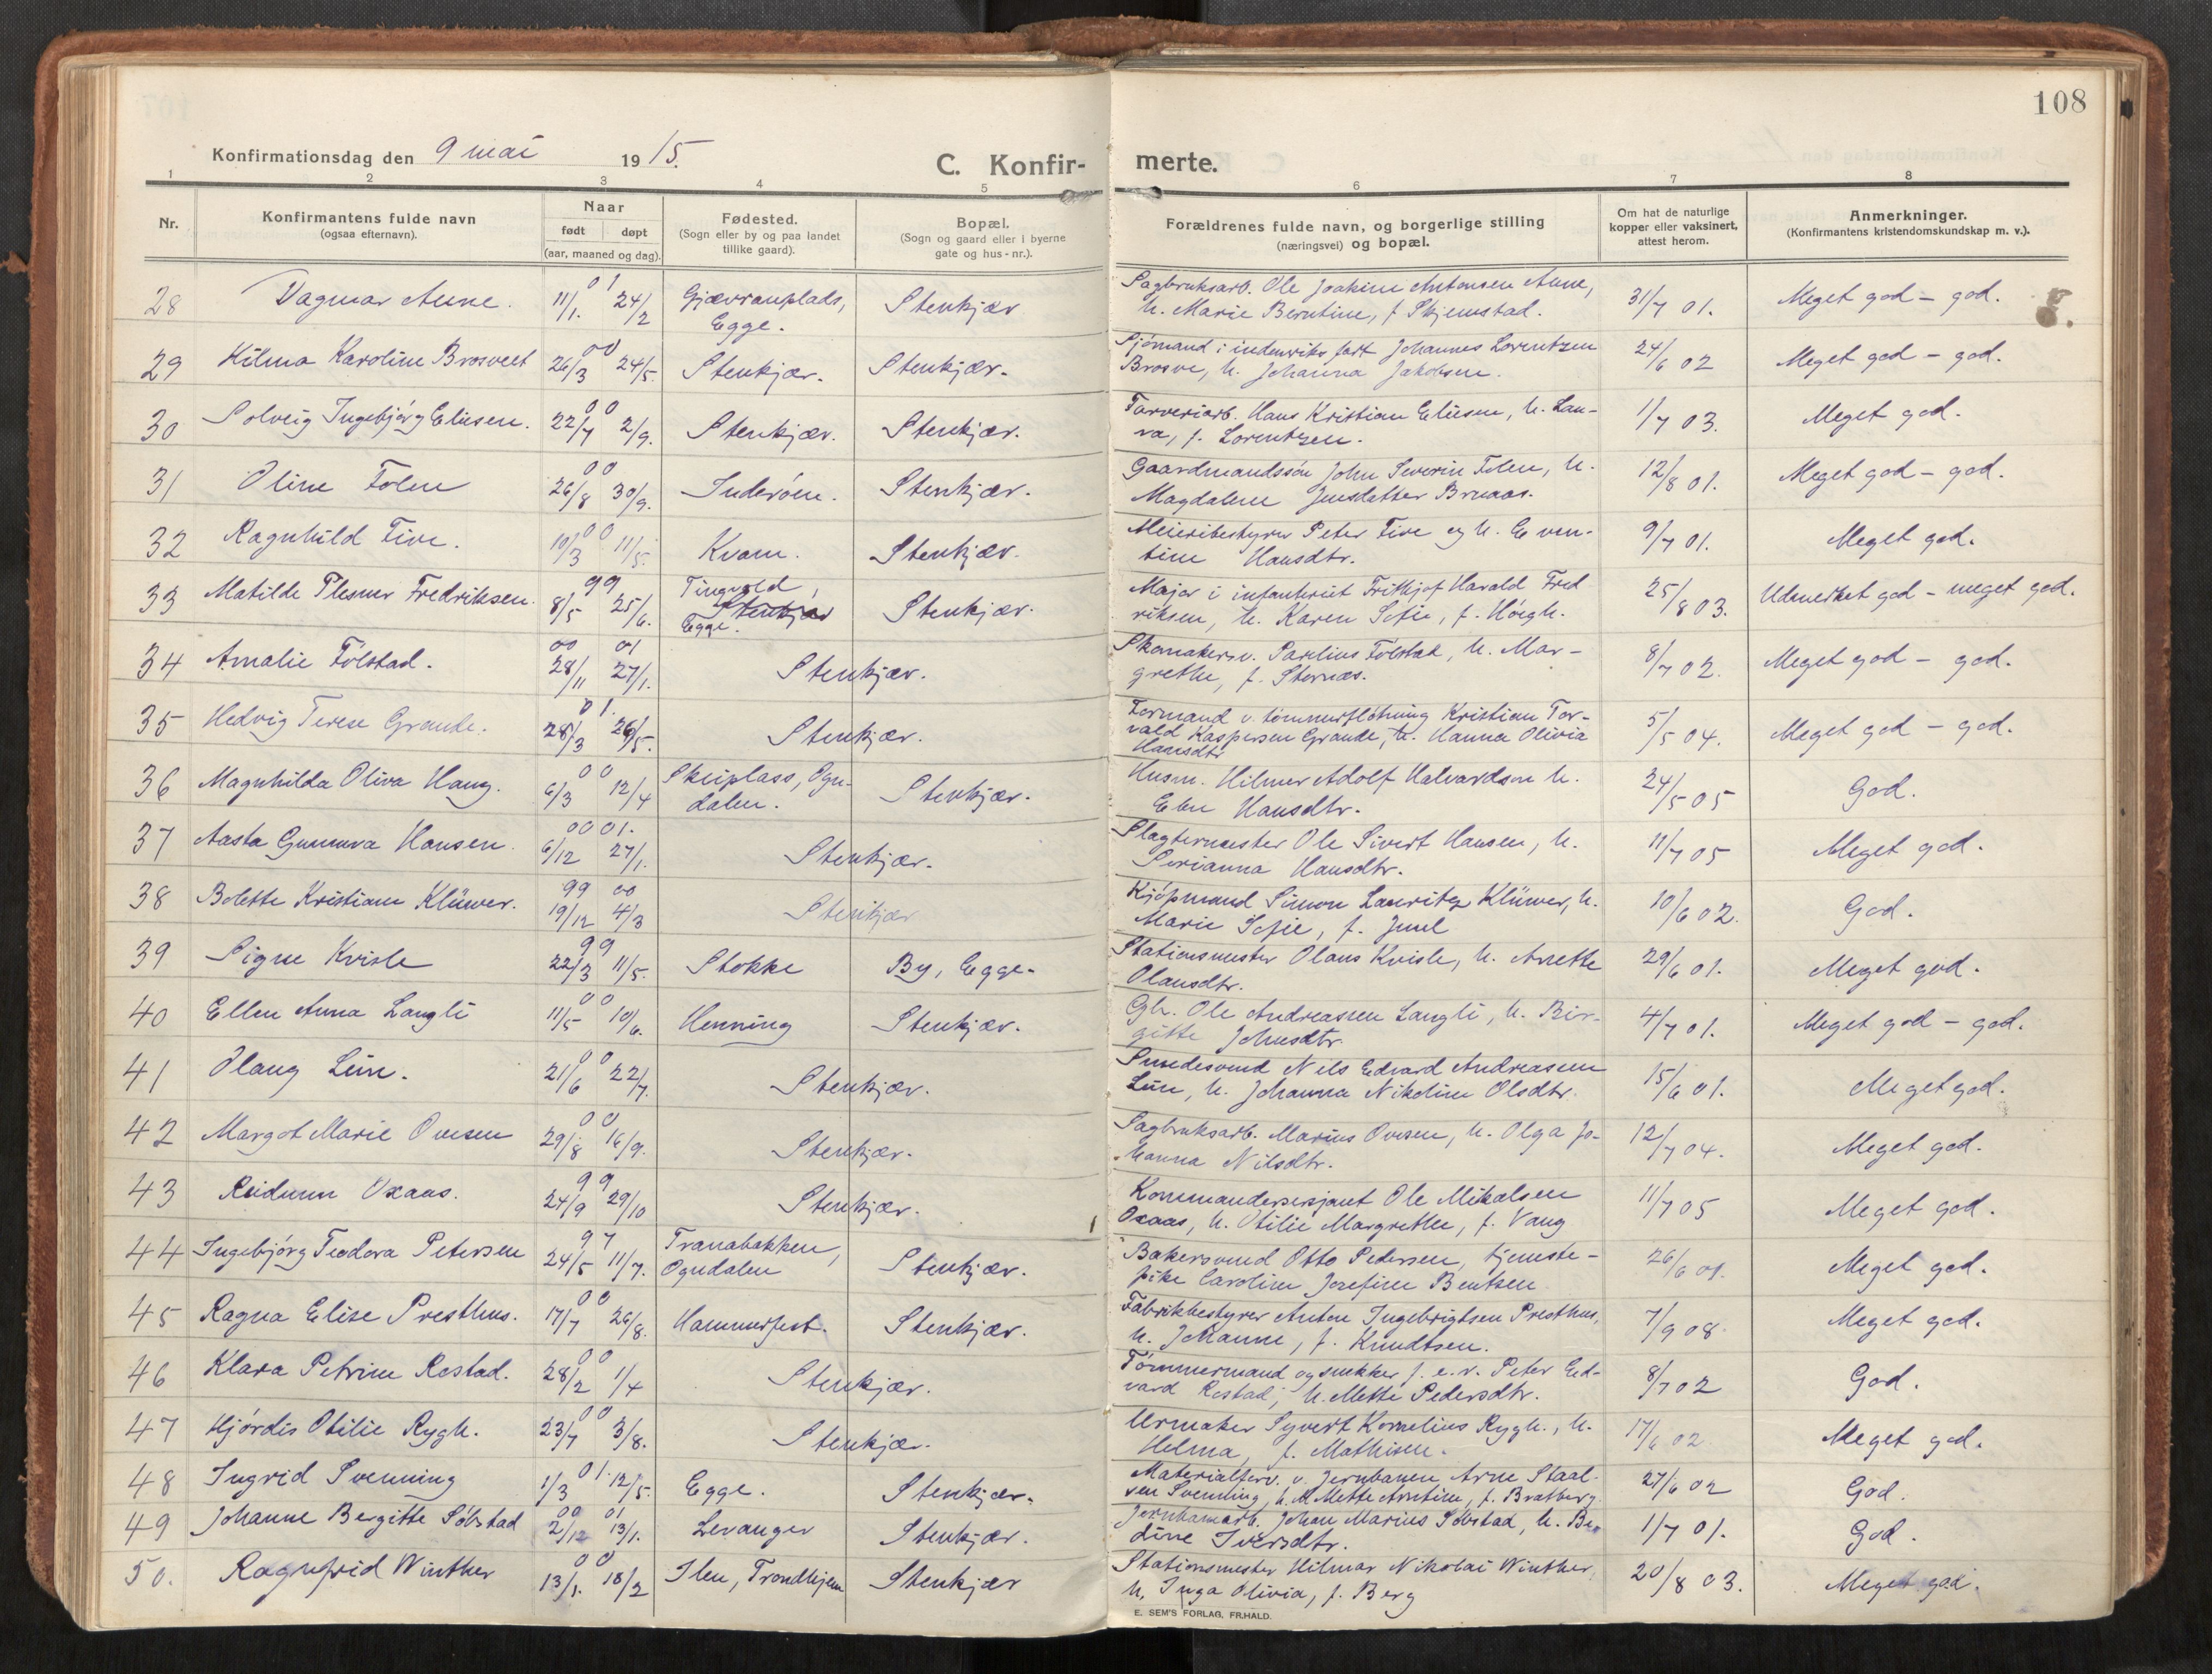 108
Konfirmationsdag den 9 mai 1915.
C. Konfir-
merte.
1 2 3 4 5 6 7 8
Nr.
Konfirmantens fulde navn
(ogsaa efternavn).
Naar
født døpt
(aar, maaned og dag).
Fødested.
(Sogn eller by og paa landet
tillike gaard).
Bopæl.
(Sogn og gaard eller i byerne
gate og hus-nr.).
Forældrenes fulde navn, og borgerlige stilling
(næringsvei) og bopæl.
Om hat de naturlige
kopper eller vaksinert,
attest herom.
Anmerkninger.
(Konfirmantens kristendomskundskap m. v.).
28 Dagmar Aune. 01 11/1. 24/2 Gjævranplads, Stenkjær Sagbruksarb. Ole Joakim Antonsen Aune, 31/7 01. Meget god – god.
Egge. h. Marie Berntine, f Skjemstad.
29 Hilma Karoline Brosveet 00 26/3 24/5. Stenkjær. Stenkjær. Sjømand i indenriks fart Johannes Lorentzen 24/6 02 Meget god – god.
Brosve, h. Johanna Jakobsen.
30 Solveig Ingebjørg Eliesen. 00 22/7 2/9. Stenkjær. Stenkjær. Farveriarb. Hans Kristian Eliesen, h. Lau- 1/7 03. Meget god.
ra, f. Lorentzen.
31 Oline Folen 00 26/8 30/9. Inderøen. Stenkjær. Gaardmandssøn John Severin Folen, h. 12/8 01. Meget god – god.
Magdalene Jensdatter Bruaas.
32 Ragnhild Five. 00 10/3 11/5. Kvam. Stenkjær. Meieribestyrer Peter Five og h. Even- 9/7 01. Meget god.
tine Hansdtr.
33 Matilde Plesner Fredriksen. 99 8/5 25/6. Tingvold, Stenkjær. Major i infanteriet Fritkjof Harald Fred 25/8 03. Udmerket god – meget god.
Stenkjær
Egge. riksen, h. Karen Sofie, f. Høegh.
34 Amalie Følstad. 00 01 28/11 27/1. Stenkjær. Skomakersv. Paulius Følstad, h. Mar- 8/7 02. Meget god – god.
grethe, f. Sternæs.
35 Hedvig Terese Grande. 01. 28/3 26/5. Stenkjær. Formand v. tømmerfløtning Kristian Tor- 5/5 04. Meget god – god.
vald Kaspersen Grande, h. Hanna Olivia
Hansdtr
36 Magnhilda Oliva Haug. 00 6/3 12/4 Skeiplass, Ogn- Stenkjær. Husm. Hilmer Adolf Halvardsen h. 24/5 05 God.
dalen. Elen Hansdtr.
37 Aasta Gunnva Hansen. 00 01. 6/12 27/1. Stenkjær. Slagtermester Ole Sivert Hansen, h. 11/7 05 Meget god.
Serianna Hansdtr.
38 Bolette Kristiane Klüwer. 99 00 19/12 4/3 Stenkjær Kjøpmand Simon Lauritz Klüwer, h. 10/6 02. God.
Marie Sofie, f. Juul
39 Signe Kvisle 99 22/3 11/5. Stokke By, Egge. Stationsmester Olaus Kvisle, h. Anette 29/6 01. Meget god.
Olausdtr.
40 Ellen Anna Langli 00 11/5 10/6. Henning Stenkjær. Gbr. Ole Andreassen Langli, h. Bir- 4/7 01. Meget god – god.
gitte Johnsdtr.
41 Olaug Lein. 00 21/6 22/7. Stenkjær. Smedesvend Nils Edvard Andreassen 15/6 01. Meget god.
Lein, h. Johanna Nikoline Olsdtr.
42 Margot Marie Ovesen 00 29/8 16/9. Stenkjær. Sagbruksarb. Marius Ovesen, h. Olga Jo- 12/7 04. Meget god.
hanna Nilsdtr.
43 Reidunn Oxaas. 99 24/9 29/10 Stenkjær. Kommandersersjant Ole Mikalsen 11/7 05 Meget god.
Oxaas, h. Otilie Margrethe, f. Vang
44 Ingebjørg Teodora Petersen 97 24/5 11/7. Tranabakken, Stenkjær. Bakersvend Otto Pedersen, tjeneste- 26/6 01. Meget god.
Ogndalen pike Caroline Josefine Bentzen
45 Ragna Elise Presthus. 00 17/7 26/8. Hammerfest. Stenkjær. Fabrikbestyrer Anton Ingebrigtsen Presthus, 7/9 08 Meget god.
h. Johanne, f. Knudtsen.
46 Klara Petrine Restad. 00 28/2 1/4 Stenkjær. Tømmermand og snekker f. e. r. Peter Ed- 8/7 02 God.
vard Restad, h. Mette Pedersdtr.
47 Hjørdis Otilie Rygh. 00 23/7 3/8. Stenkjær. Urmaker Syvert Kornelius Rygh., h. 17/6 02 Meget god.
Helma, f. Mathisen.
48 Ingrid Svenning 01. 1/3 12/5. Egge. Stenkjær. Materialforv. v. Jernbanen Arne Staal- 27/6 02 God.
sen Svenning, h. Mette Arntine, f. Bratberg
49 Johanne Bergitte Søbstad 00 01 2/12 13/1. Levanger Stenkjær. Jernbanearb. Johan Marius Søbstad, h. Be- 1/7 01. God.
dine Iversdtr.
50. Ragnfrid Winther 00 13/1. 18/2 Ilen, Trondhjem Stenkjær Stationsmester Hilmar Nikolai Winther, 20/8 03. Meget god.
h, Inga Olivia, f. Berg
E. SEM'S FORLAG, FR.HALD.